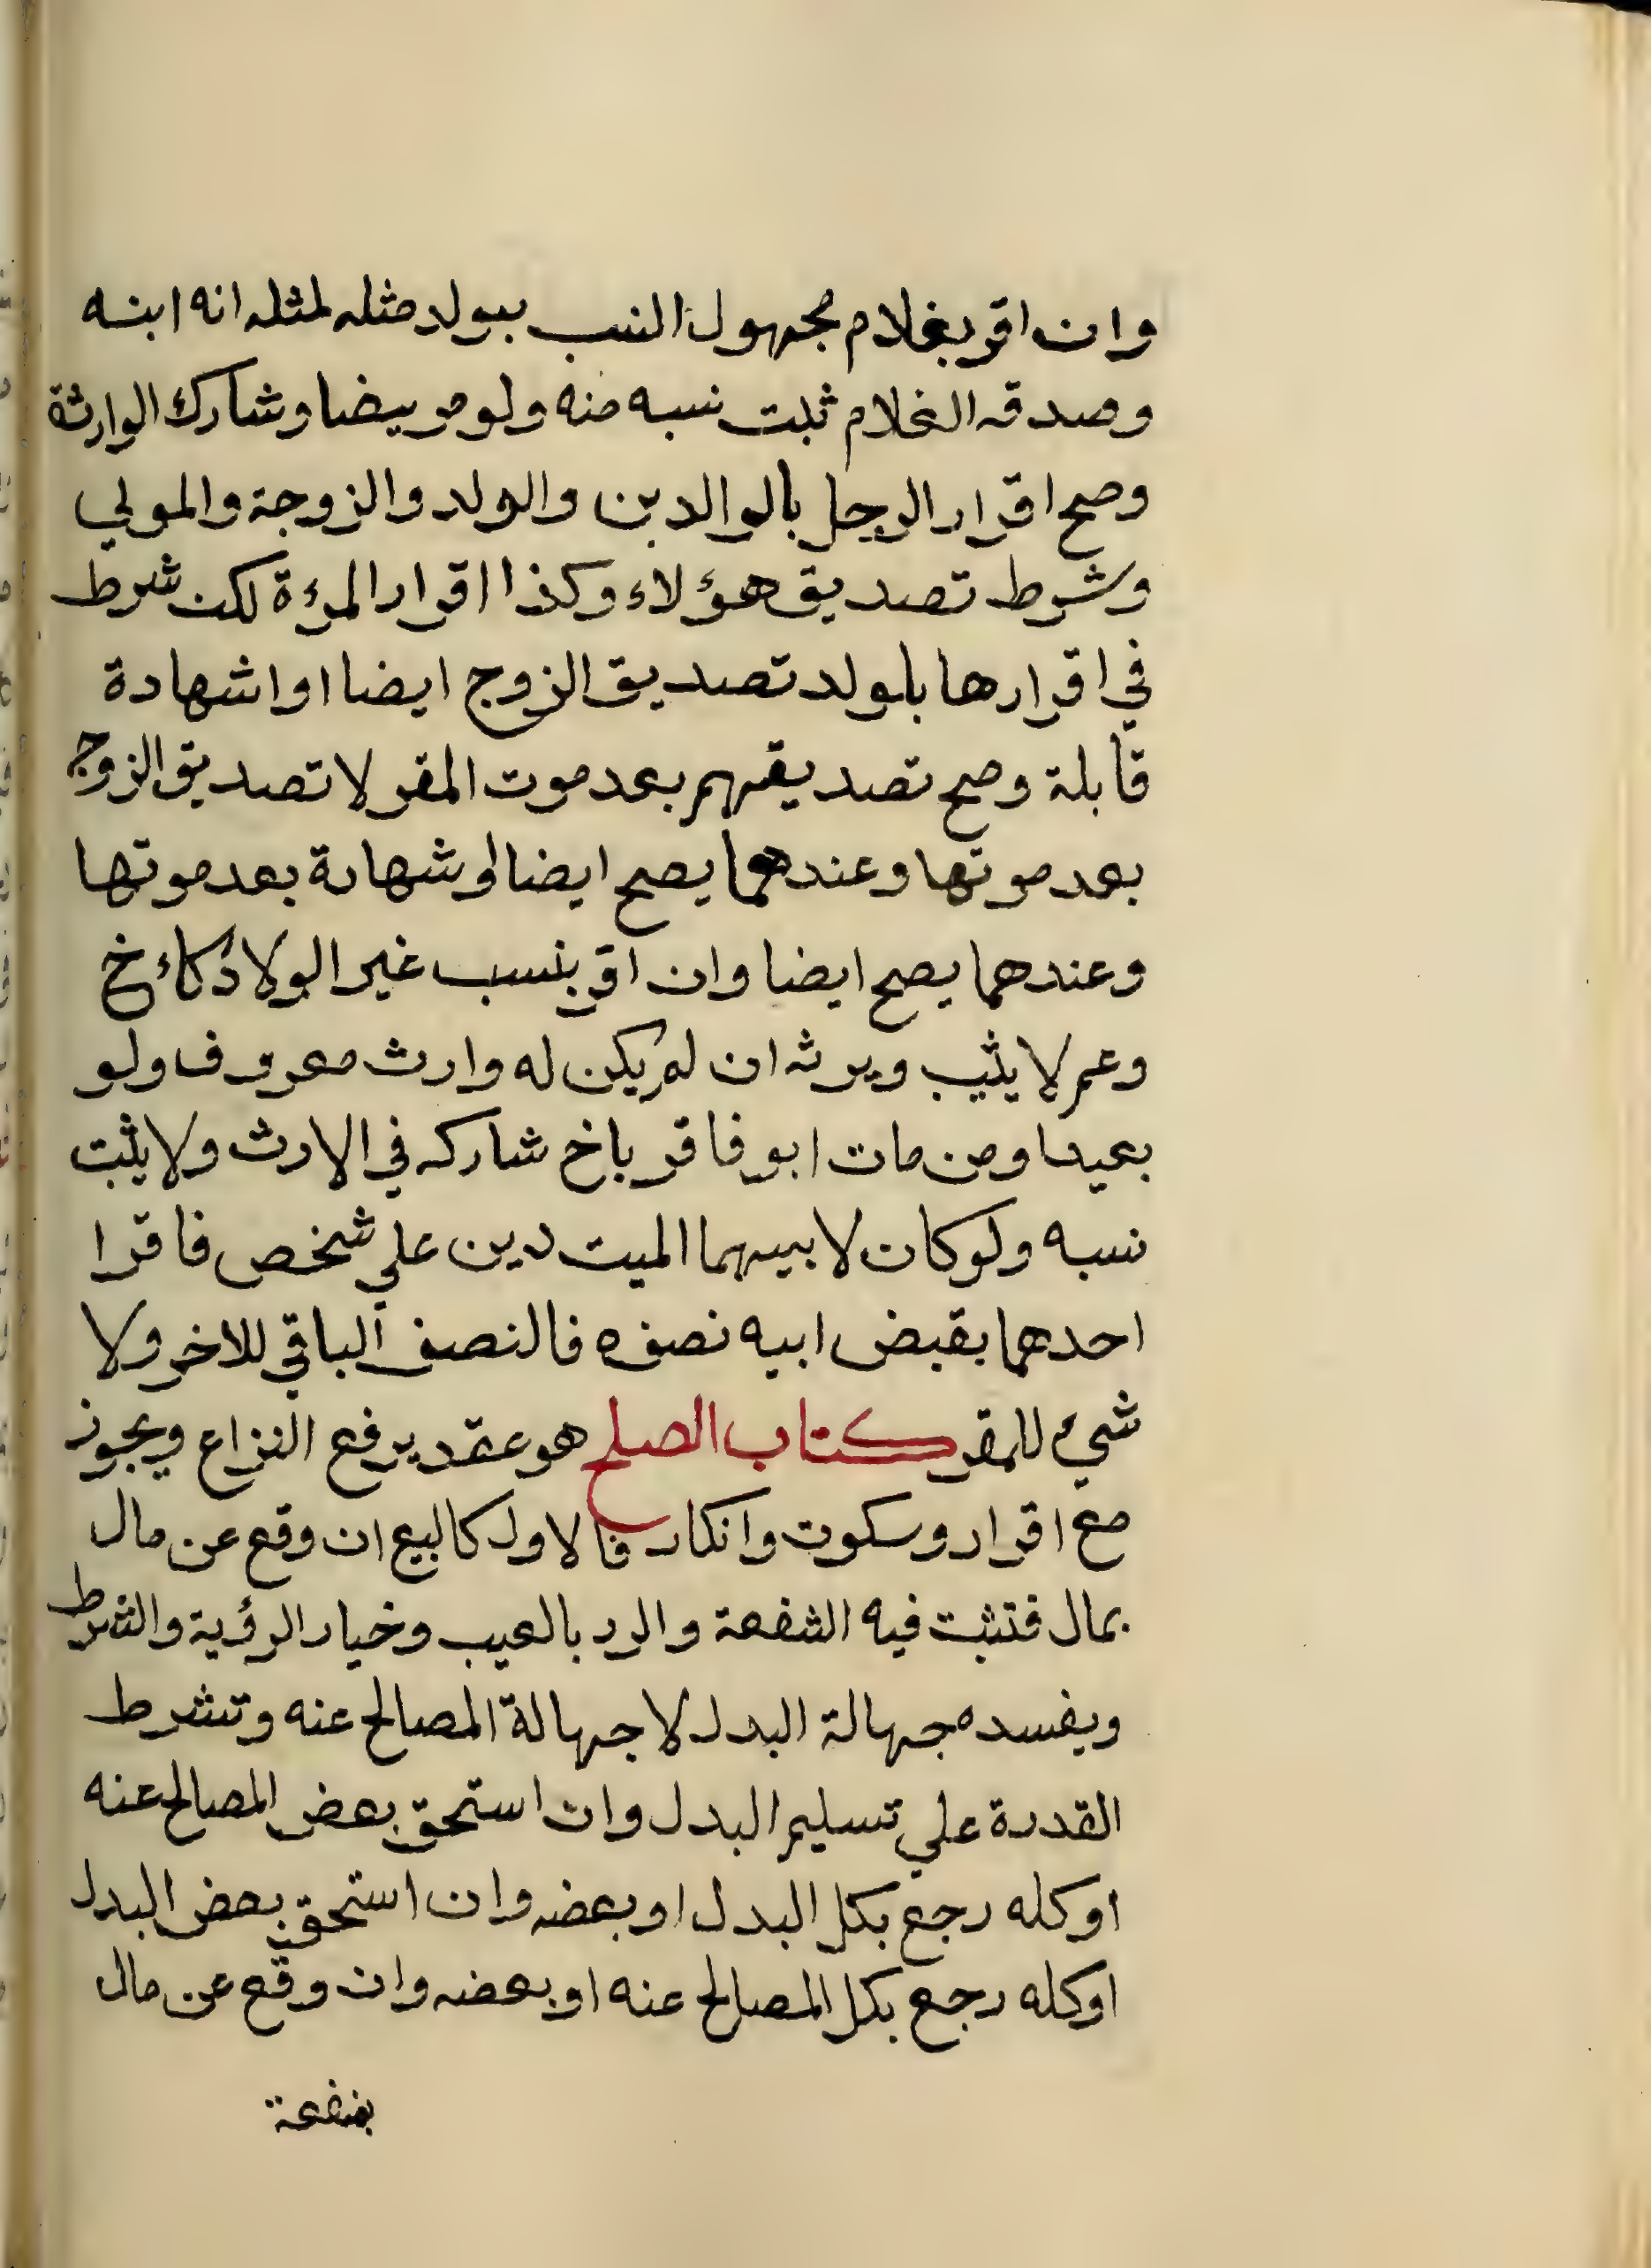 وان اقر بغلام مجهول النسب بيولد مثله لمثله انه ابنه
وصدقه الغلام ثبت نسبه منه ولو مريضا وشارك الوارثة
وصح اقرار الرجل بالوالدين والولد والزوجة والمولي
وشرط تصديق هؤلاء وكذا اقرار المرءة لكن شرط
في اقرارها بلولد تصديق الزوج ايضا او اشهادة
قابلة وصح تصديقهم بعد موت المقر لا تصديق الزوج
بعد موتها وعندهما يصح ايضا لو شهادة بعد موتها
وعندهما يصح ايضا وان اقر بنسب غير الولاد كاءخ
وعم لا يثبت ويرثه ان لم يكن له وارث معروف ولو
بعيدا ومن مات ابو فاقر باخ شاركه في الارث ولا يثبت
نسبه ولو كان لابيهما الميت دين علي شخص فاقرا
احدهما بقبض ابيه نصفه فالنصف الباقي للاخر ولا
شيء للمقر كتاب الصلح هو عقد يرفع النزاع ويجوز
مع اقرار وسكوت وانكار فالاول كالبيع ان وقع عن مال
بمال فتثبت فيه الشفعة والرد بالعيب وخيار الرؤية والشرط
ويفسده جهالة البدل لا جهالة المصالح عنه وتشرط
القدرة علي تسليم البدل وان استحق بعض المصالح عنه
او كله رجع بكل البدل او بعضه وان استحق بعض البدل
او كله رجع بكل المصالح عنه او بعضه وان وقع عن مال
بمنفعة